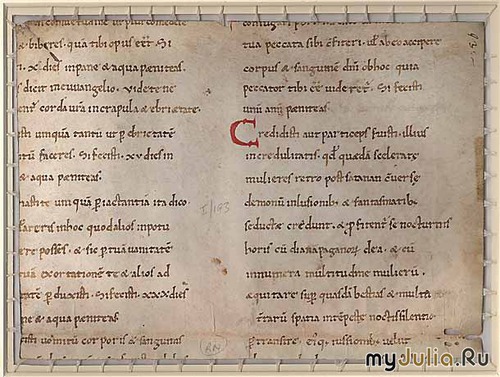 & biberes. qua tibi opus eēt. Si
x. dies in pane & aqua pæniteas.
dicit in euuangelio. Videte ne
corda ur̄a in crapula & ebrietate.
umquā tantū ut p̱ ebrietatē
faceres. Si fecisti. xv dies in
& aqua pæniteas.
umquā p̱ iactantiā ita dico
in hoc quod alios in potu
posses. & sic p̱ tuā uanitatē
tuā exortationē te & alios ad
p̱duxisti. Si fecisti. xxx dies
ne & aqua pæniteas
uomitū corporis & sanguinis
tua peccata sibi cōfiteri. ul̄ ab eo accipere
corpus & sanguinē dn̄i ob hoc quia
peccator tibi eē uideret̄. Si fecisti
unū annū pæniteas.
Credidisti aut particeps fuisti illius
incredulitatis. qd̄ quędā scelerate
mulieres retro post satanan cōuersę
demonū inlusionib; & fantasmatib;
seductę credunt. & p̱fitent̄ se nocturnis
horis cū diana paganoꝝ dea. & cū
innumera multitudine mulierū.
æquitare sup̱ quasdā bestias & multa
terrarū spatia intempestę noctis silentio
p̱transire. eiꝰq; iussionib; uelut
I/193
RN
myJulia.Ru